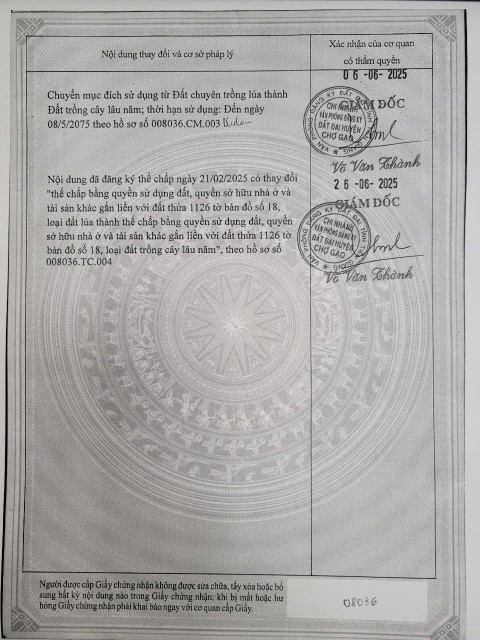 Nội dung thay đổi và cơ sở pháp lý
Xác nhận của cơ quan
có thẩm quyền
Chuyển mục đích sử dụng từ Đất chuyên trồng lúa thành
Đất trồng cây lâu năm; thời hạn sử dụng: Đến ngày
08/5/2075 theo hồ sơ số 008036.CM.003
06-06-2025
GIÁM ĐỐC
CHI NHÁNH
VĂN PHÒNG ĐĂNG KÝ
ĐẤT ĐAI HUYỆN
CHỢ GẠO
Võ Văn Thành
Nội dung đã đăng ký thế chấp ngày 21/02/2025 có thay đổi
"thế chấp bằng quyền sử dụng đất, quyền sở hữu nhà ở và
tài sản khác gắn liền với đất thửa 1126 tờ bản đồ số 18,
loại đất lúa thành thế chấp bằng quyền sử dụng đất, quyền
sở hữu nhà ở và tài sản gắn liền với đất thửa 1126 tờ
bản đồ số 18, loại đất trồng cây lâu năm", theo hồ sơ số
008036.TC.004
26-06-2025
GIÁM ĐỐC
CHI NHÁNH
VĂN PHÒNG ĐĂNG KÝ
ĐẤT ĐAI HUYỆN
CHỢ GẠO
Võ Văn Thành
Người được cấp Giấy chứng nhận không được sửa chữa, tẩy xóa hoặc bổ
sung bất kỳ nội dung nào trong Giấy chứng nhận; khi bị mất hoặc hư
hỏng Giấy chứng nhận phải khai báo ngay với cơ quan cấp Giấy.
08036